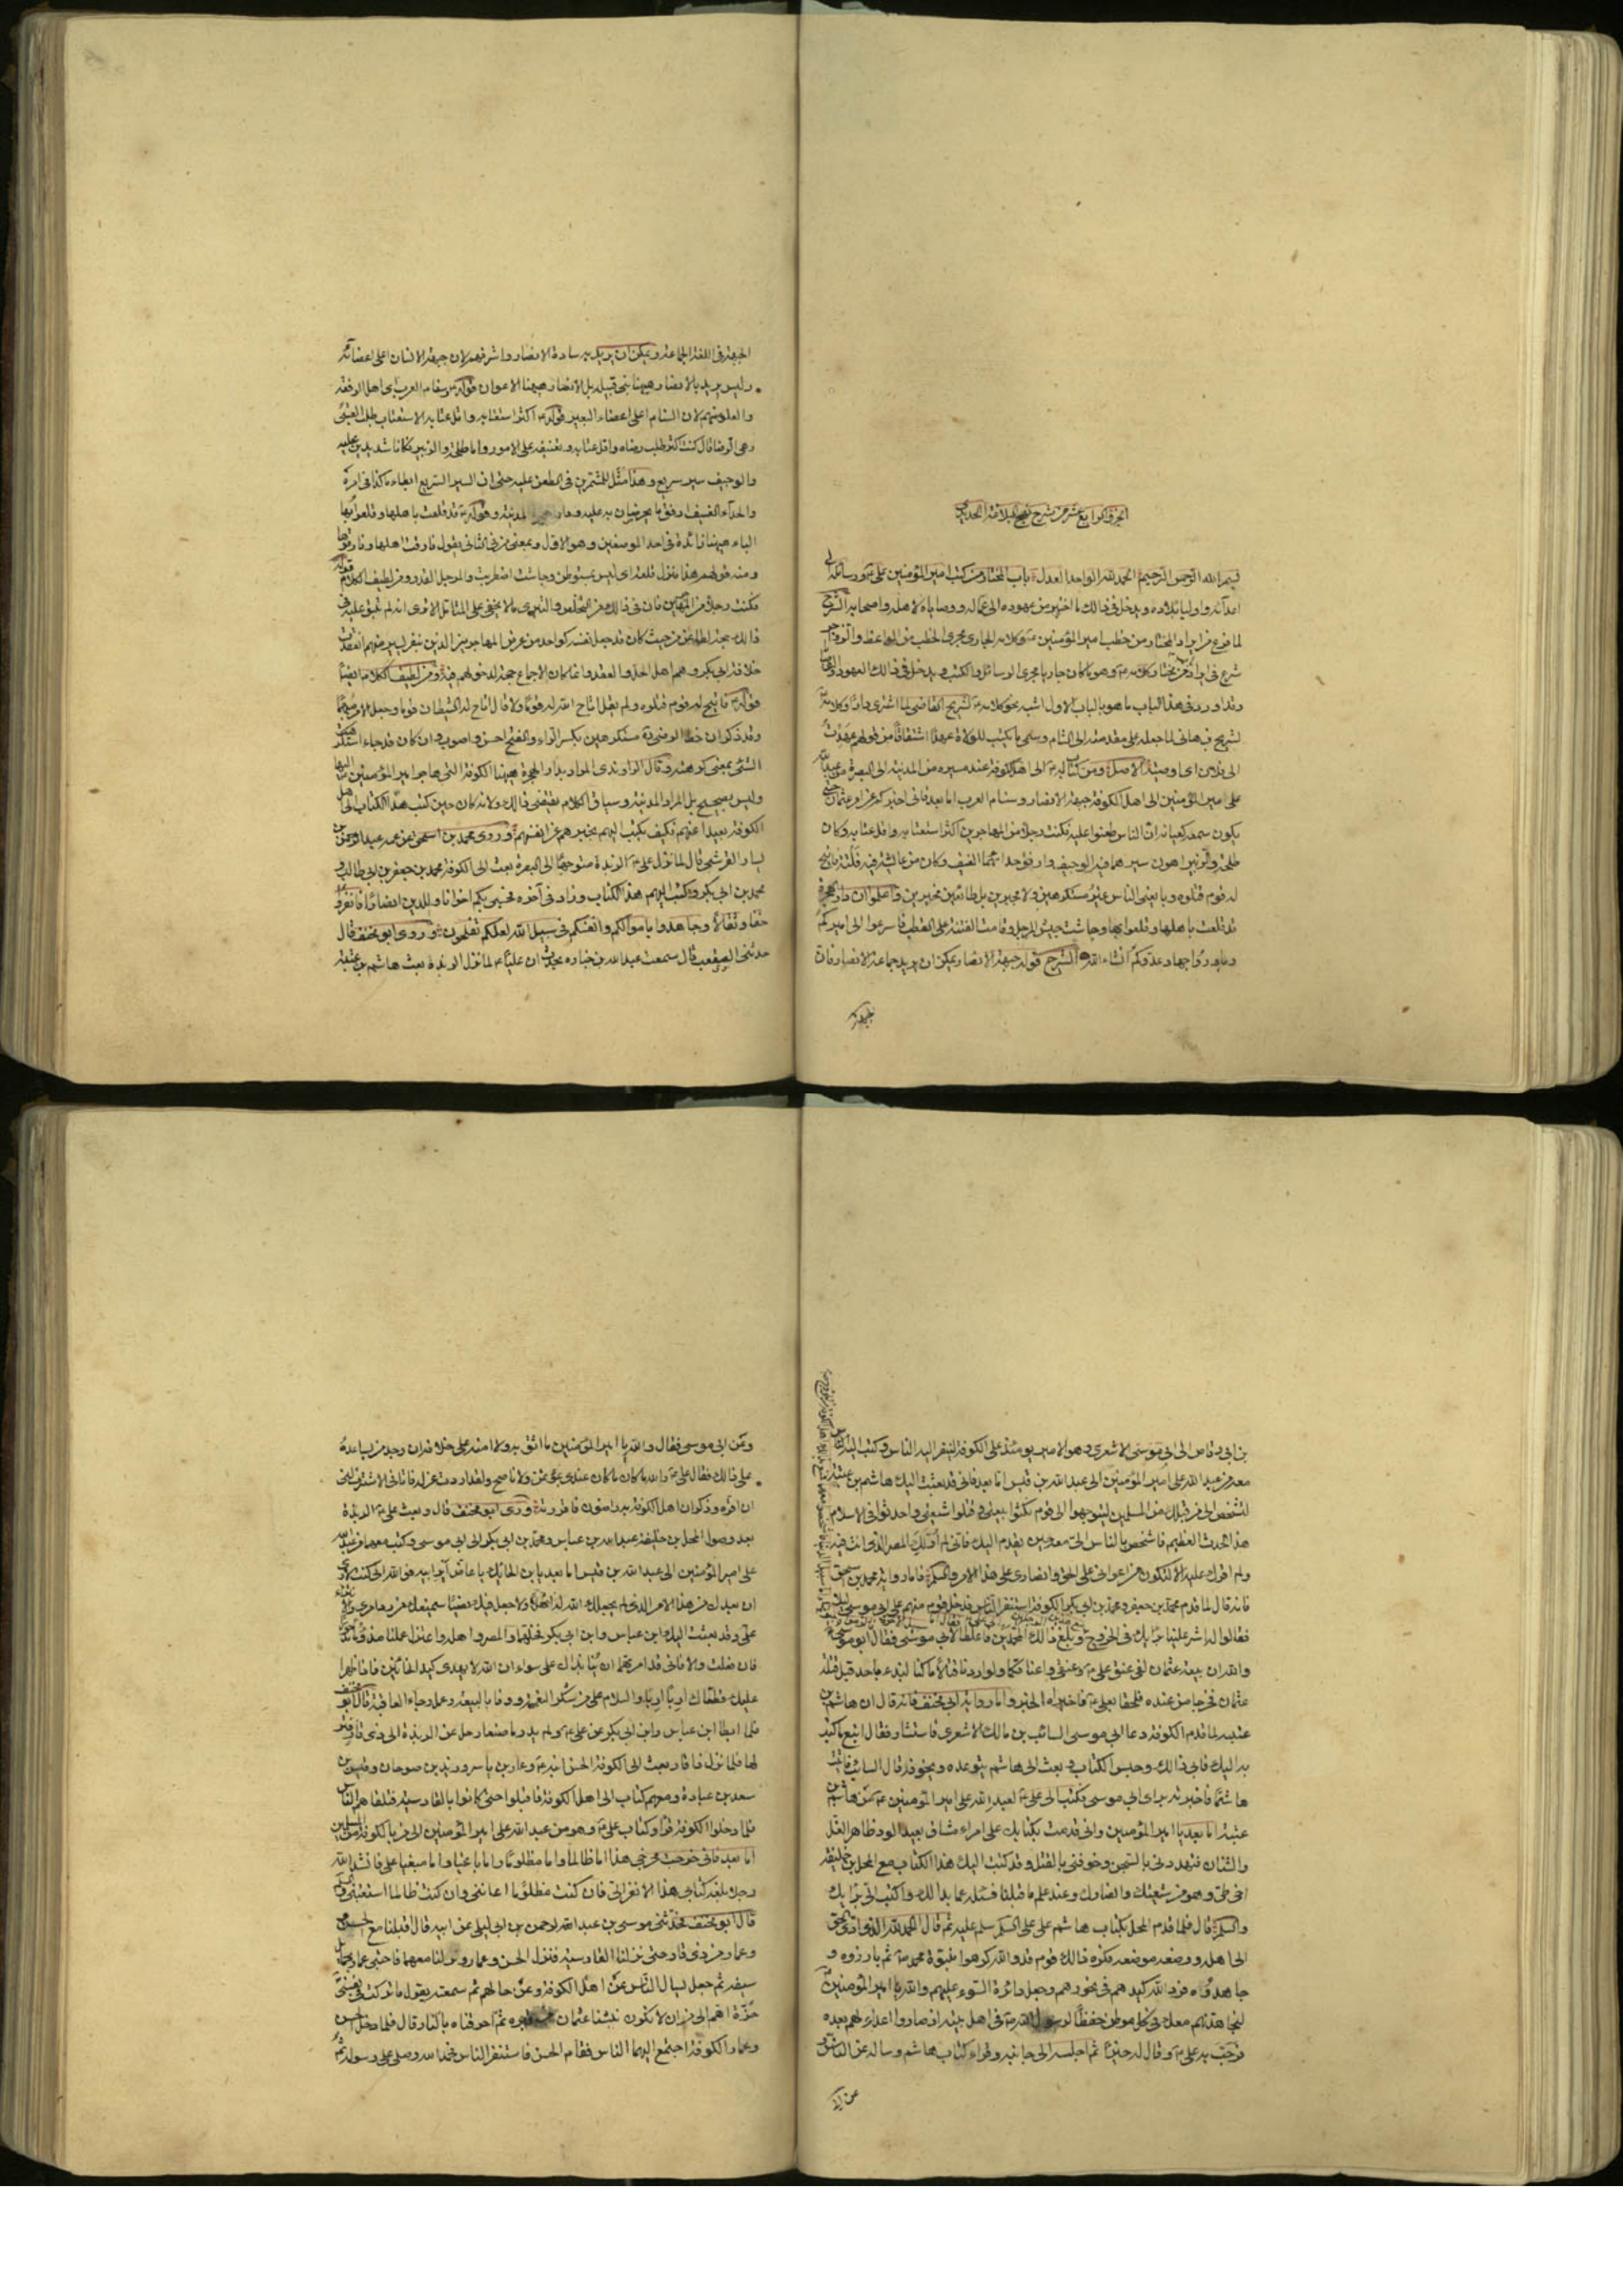 الجزو الرابع عشر من شرح نهج البلاغة الحديدي
بسم الله الرحمن الرحيم الحمد لله الواحد العدل باب المختار من كتب امير المؤمنين علي ع ورسائله الى
اعدآئه واولياء بلاده ويدخل في ذلك ما اختير من عهوده الى عماله ووصاياه لاهله واصحابه الشرح
لما فرغ من ايراد المختار من خطب امير المؤمنين ع وكلامه الجاري مجرى الخطب من المواعظ والزواجر
شرع في ايراد من مختار كلامه ع وهو ما كان جاريا مجرى الرسائل والكتب ويدخل في ذلك العهود والوصايا
وقد اورد في هذا الباب ما هو بالباب الاول اشبه نحو كلامه ع لشريح القاضي لما اشترى دارا وكلامه ع
لشريح بن هاني لما جعله على مقدمته الى الشام وسمى ما يكتب للولاة عهدا اشتقاقا من قولهم عهدت
الى فلان اى اوصيته الاصل ومن كتاب له ع الى اهل الكوفة عند مسيره من المدينة الى البصرة من عبد الله
علي امير المؤمنين الى اهل الكوفة جبهة الانصار وسنام العرب اما بعد فاني اخبركم عن امر عثمان حتى
يكون سمعه كعيانه ان الناس طعنوا عليه فكنت رجلا من المهاجرين اكثر استعتابه واقل عتابه وكان
طلحة والزبير اهون سيرهما فيه الوجيف وارفق حدائهما العنيف وكان من عائشة فيه فلتة فاتيح
له قوم قتلوه وبايعني الناس غير مستكرهين ولا مجبرين بل طائعين مخيرين واعلموا ان دار الهجرة
قد قلعت باهلها وقلعوا بها وجاشت جيش المرجل وقامت الفتنة على القطب فاسرعوا الى اميركم
وبادروا جهاد عدوكم انشاء الله الشرح قوله جبهة الانصار يمكن ان يريد جماعة الانصار فان
الجبهة
الجبهة في اللغة الجماعة ويمكن ان يريد به سادة الانصار واشرافهم لان جبهة الانسان اعلى اعضائه
وليس يريد بالانصار ههنا بني قيلة بل الانصار ههنا الاعوان قوله ع وسنام العرب اى اهل الرفعة
والعلو منهم لان السنام اعلى اعضاء البعير قوله ع اكثر استعتابه واقل عتابه الاستعتاب طلب العتبى
وهي الرضا قال كنت اكثر طلب رضاه واقل عتابه وتعنيفه على الامور واما طلحة والزبير فكانا شديدين عليه
والوجيف سير سريع وهذا مثل للمشمرين في الطعن عليه حتى ان السير السريع ابطاء ما كذا في امره
والحداء العنيف ارفق ما يحرضان به عليه ودار الهجرة المدينة وقوله ع قد قلعت باهلها وقلعوا بها
الباء ههنا زائدة في احد الموضعين وهو الاول وبمعنى من في الثاني يقول فارقت اهلها وفارقوها
ومنه قولهم هذا منزل قلعة اى ليس بمستوطن وجاشت اضطربت والمرجل القدر ومن لطيف الكلام قوله
فكنت رجلا من المهاجرين فان في ذلك من التخلص والتبري ما لا يخفى على المتأمل الا ترى انه لم يبق عليه في
ذلك حجة لطاعن من حيث كان قد جعل نفسه كواحد من عرض المهاجرين الذين بنفر يسير منهم انعقدت
خلافة ابي بكر وهم اهل الحل والعقد وانما كان الاجماع حجة لدخولهم فيه ومن لطيف الكلام ايضا
قوله ع فاتيح له قوم قتلوه ولم يقل اتاح الله له قوما ولا قال اتاح له الشيطان قوما وجعل الامر مبهما
وقد ذكر ان خط الرضي ره مستكرهين بكسر الراء والفتح احسن واصوب وان كان قد جاء استكرهت
الشئ بمعنى كرهته وقال الراوندي المراد بدار الهجرة ههنا الكوفة التي هاجر امير المؤمنين ع اليها
وليس بصحيح بل المراد المدينة وسياق الكلام يقتضي ذلك ولانه كان حين كتب هذا الكتاب الى اهل
الكوفة بعيدا عنهم فكيف يكتب اليهم يخبرهم عن انفسهم وروى محمد بن اسحق عن عمه عبد الرحمن بن
يسار القرشي قال لما نزل علي ع الربذة متوجها الى البصرة بعث الى الكوفة محمد بن جعفر بن ابي طالب و
محمد بن ابي بكر وكتب اليهم هذا الكتاب وزاد في آخره فحسبي بكم اخوانا وللدين انصارا فانفروا
خفافا وثقالا وجاهدوا باموالكم وانفسكم في سبيل الله لعلكم تفلحون وروى ابو مخنف قال
حدثني الصقعب قال سمعت عبد الله بن جنادة يحدث ان عليا ع لما نزل الربذة بعث هاشم بن عتبة
بن ابي وقاص الى ابي موسى الاشعري وهو الامير يومئذ على الكوفة لينفر اليه الناس وكتب اليه
معه من عبد الله علي امير المؤمنين الى عبد الله بن قيس اما بعد فاني قد بعثت اليك هاشم بن عتبة
لتشخص الى من قبلك من المسلمين ليتوجهوا الى قوم نكثوا بيعتي وقتلوا شيعتي واحدثوا في الاسلام
هذا الحدث العظيم فاشخص بالناس الي معه حين يقدم اليك فاني لم اولك المصر الذي انت فيه
ولم اقرك عليه الا لتكون من اعواني على الحق وانصاري على هذا الامر والسلم فاما رواية محمد بن اسحق
فانه قال لما قدم محمد بن جعفر ومحمد بن ابي بكر الكوفة استنفر الناس فدخل قوم منهم على ابي موسى ليلا
فقالوا له اشر علينا برأيك في الخروج وبلغ ذلك المحمدين فاغلظا لابي موسى فقال ابو موسى
والله ان بيعة عثمان لفي عنق علي ع وعنقي واعناقكما ولو اردنا قتالا ما كنا لنبدء باحد قبل قتلة
عثمان فخرجا من عنده فلحقا بعلي ع فاخبراه الخبر واما رواية ابي مخنف فانه قال ان هاشم بن
عتبة لما قدم الكوفة دعا ابي موسى السائب بن مالك الاشعري فاستشاره فقال اتبع ما كتب
به اليك فابى ذلك وحبس الكتاب وبعث الى هاشم يتوعده ويخوفه قال السائب فاتيت
هاشما فاخبرته براى ابي موسى فكتب الى علي ع لعبد الله علي امير المؤمنين ع من هاشم بن
عتبة اما بعد يا امير المؤمنين واني قدمت بكتابك على امرء مشاق بعيد الود ظاهر الغل
والشنان فتهددني بالسجن وخوفني بالقتل وقد كتبت اليك هذا الكتاب مع المحل بن خليفة
اخي طي وهو من شيعتك وانصارك وعنده علم ما قبلنا فسئله عما بدا لك واكتب الي برأيك
والسلم قال فلما قدم المحل بكتاب هاشم على علي السلم سلم عليه ثم قال الحمد لله الذي ادى الحق
الى اهله ووضعه موضعه فكره ذلك قوم قد والله كرهوا نبوة محمد ص ثم بارزوه و
جاهدوه فرد الله كيدهم في نحورهم وجعل دائرة السوء عليهم والله يا امير المؤمنين
لنجاهدنهم معك في كل موطن حفظا لرسول الله ص في اهل بيته اذ صاروا اعداء لهم بعده
فرحب به علي ع وقال له خيرا ثم اجلسه الى جانبه وقراء كتاب هاشم وساله عن الناس
عن ابي
وعن ابي موسى فقال والله يا امير المؤمنين ما اثق به ولا امنه على خلافك ان وجد من يساعده
على ذلك فقال علي ع والله ما كان عندي بمؤتمن ولا ناصح ولقد اردت عزله فاتاني الاشتر فسالني
ان اقره وذكر ان اهل الكوفة به راضون فاقررته وروى ابو مخنف قال وبعث علي ع من الربذة
بعد وصول المحل بن خليفة عبد الله بن عباس ومحمد بن ابي بكر الى ابي موسى وكتب معهما من عبد الله
علي امير المؤمنين الى عبد الله بن قيس اما بعد يا بن الحائك يا عاض اير ابيه فوالله اني كنت لارى
ان بعدك من هذا الامر الذي لم يجعلك الله له اهلا ولا جعل لك فيه نصيبا سيمنعك من رد امري
علي وقد بعثت اليك ابن عباس وابن ابي بكر فخلهما والمصر واهله واعتزل عملنا مذؤما مدحورا
فان فعلت والا فاني قد امرتهما ان ينابذاك على سواء ان الله لا يهدي كيد الخائنين فاذا ظهرا
عليك قطعاك اربا اربا والسلام على من شكر النعمة ووفا بالبيعة وعمل برجاء العافية قال ابو مخنف
فلما ابطا ابن عباس وابن ابي بكر عن علي ع ولم يدر ما صنعا رحل عن الربذة الى ذي قار فنزل
لها فلما نزل ذا قار بعث الى الكوفة الحسن ابنه ع وعمار بن ياسر وزيد بن صوحان وقيس بن
سعد بن عبادة ومعهم كتاب الى اهل الكوفة فاقبلوا حتى كانوا بالقادسية فتلقاهم الناس
فلما دخلوا الكوفة قرأوا كتاب علي ع وهو من عبد الله علي امير المؤمنين الى من بالكوفة من المسلمين
اما بعد فاني خرجت مخرجي هذا اما ظالما واما مظلوما واما باغيا واما مبغيا علي فانشد الله
رجلا بلغه كتابي هذا الا نفر الي فان كنت مظلوما اعانني وان كنت ظالما استعتبني والسلم
قال ابو مخنف فحدثني موسى بن عبد الرحمن بن ابي ليلى عن ابيه قال اقبلنا مع الحسن
وعمار من ذي قار حتى نزلنا القادسية فنزل الحسن وعمار ونزلنا معهما فاحتبى عمار بحمايل
سيفه ثم جعل يسال الناس عن اهل الكوفة وعن حالهم ثم سمعته يقول ما تركت في نفسي
حزة اهم الي من ان لا نكون نبشنا عثمان من قبره ثم احرقناه بالنار قال فلما دخل الحسن
وعمار الكوفة اجتمع اليهما الناس فقام الحسن فاستنفر الناس فحمد الله وصلى على رسوله ثم